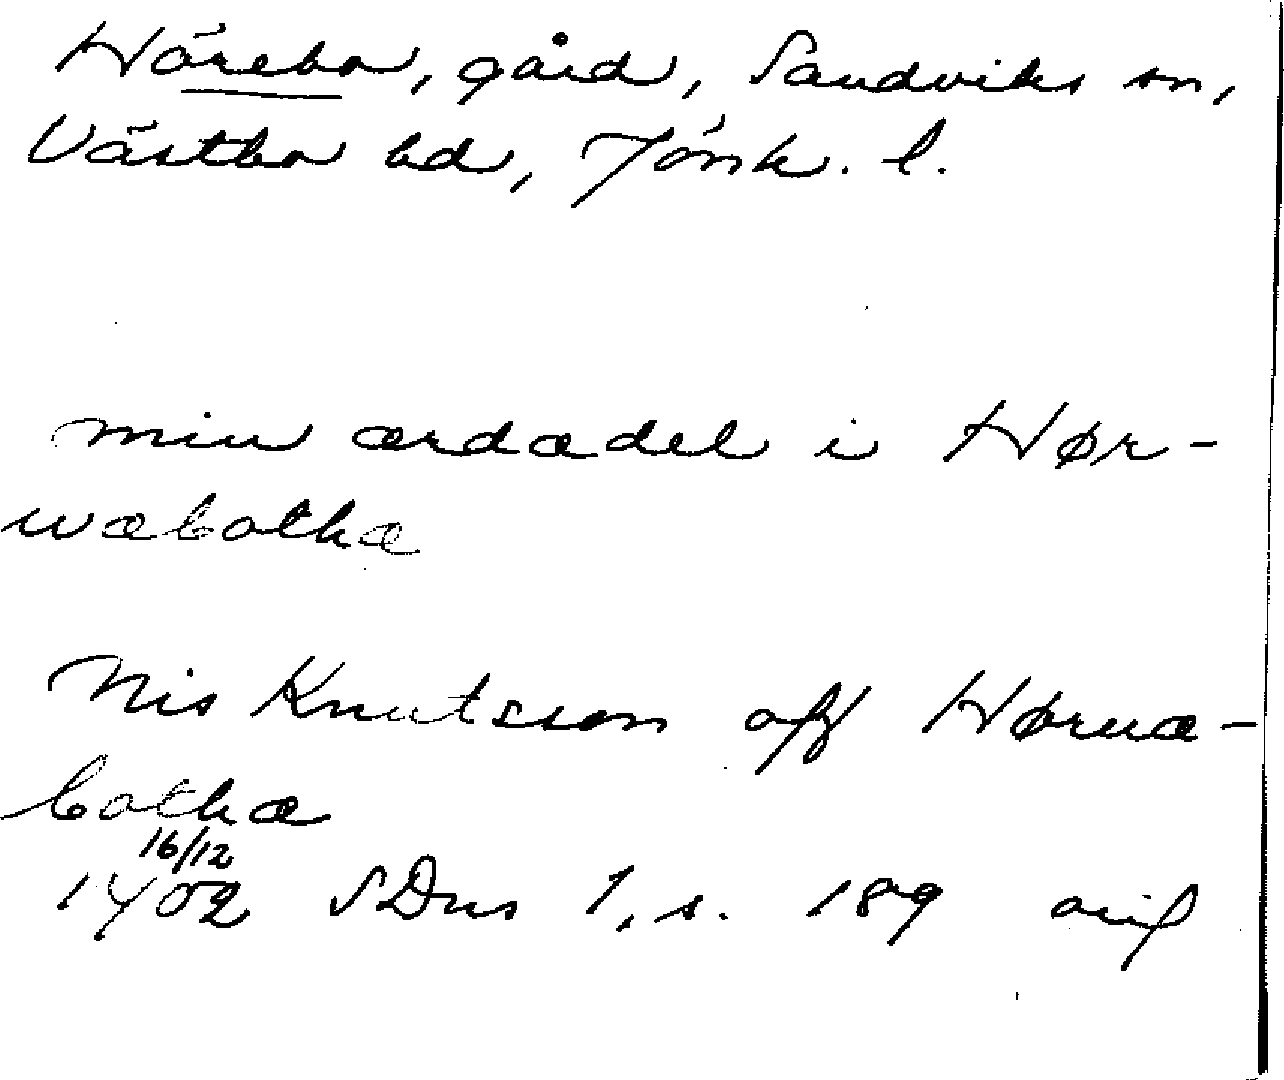 Hörebo, gård, Sandviks sn,
Västbo hd, Jönk. l.
min ærdædel i Hør-
wæbothæ
Nis Knutsson aff Høruæ-
bothæ
16/12
1402 SDns 1, s. 189 orif